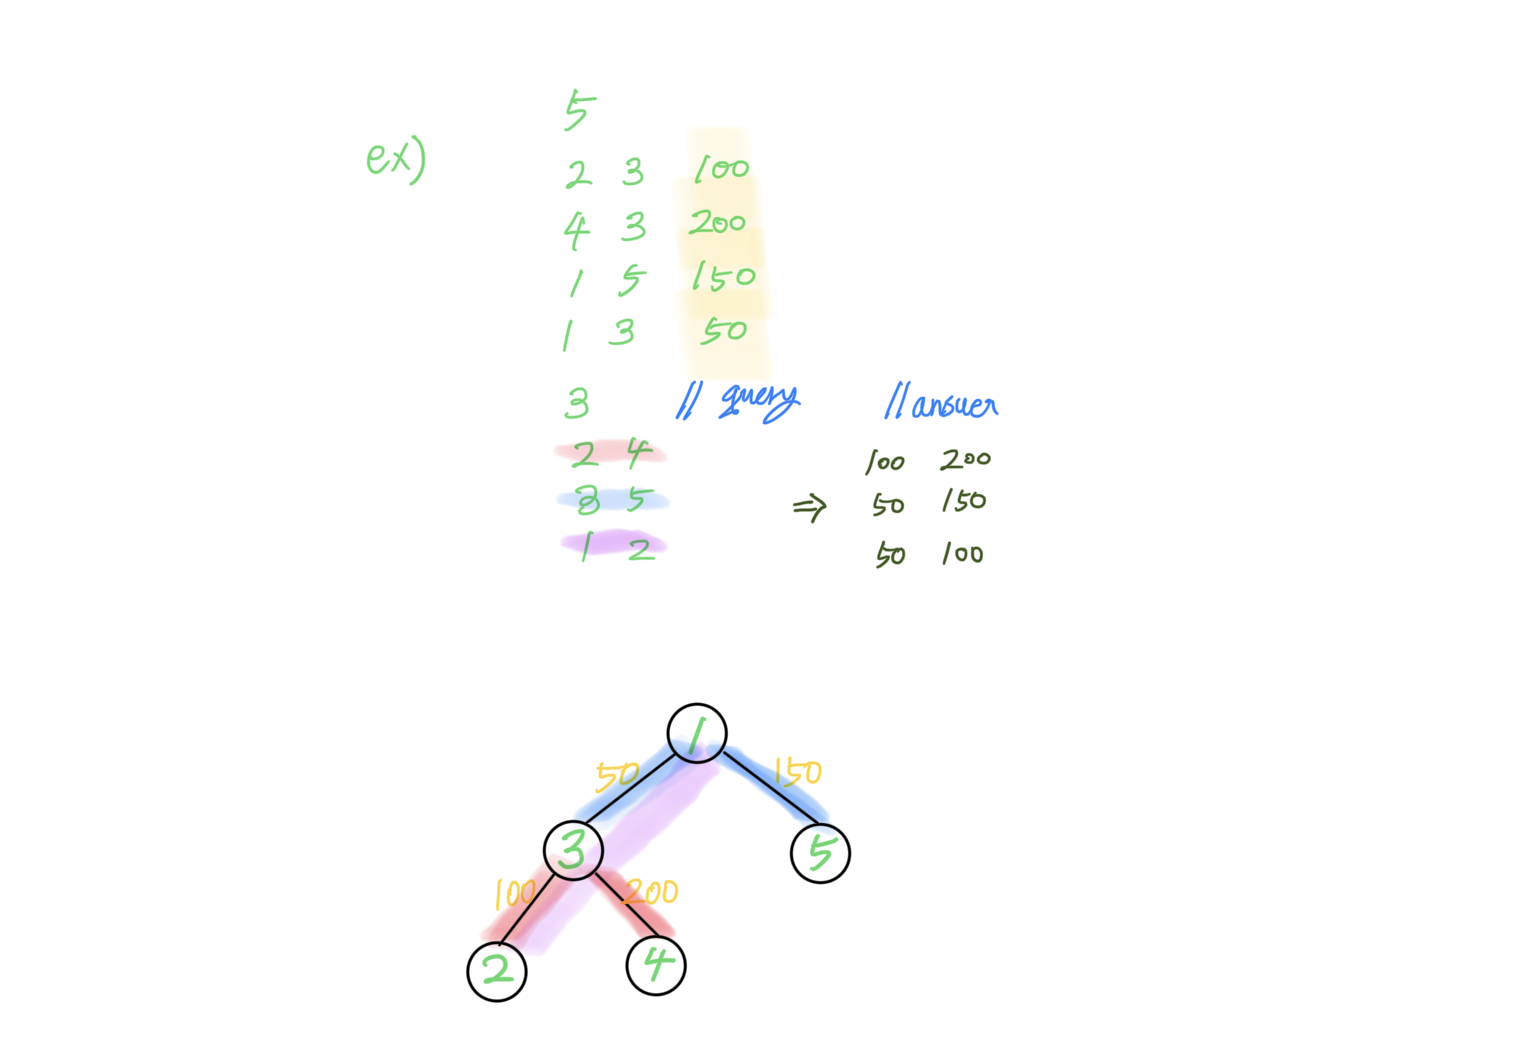 5
ex)
2 3 100
4 3 200
1 5 150
1 3 50
3 // query // answer
2 4 100 200
3 5 ⇒ 50 150
1 2 50 100
1
50 150
3 5
100 200
2 4